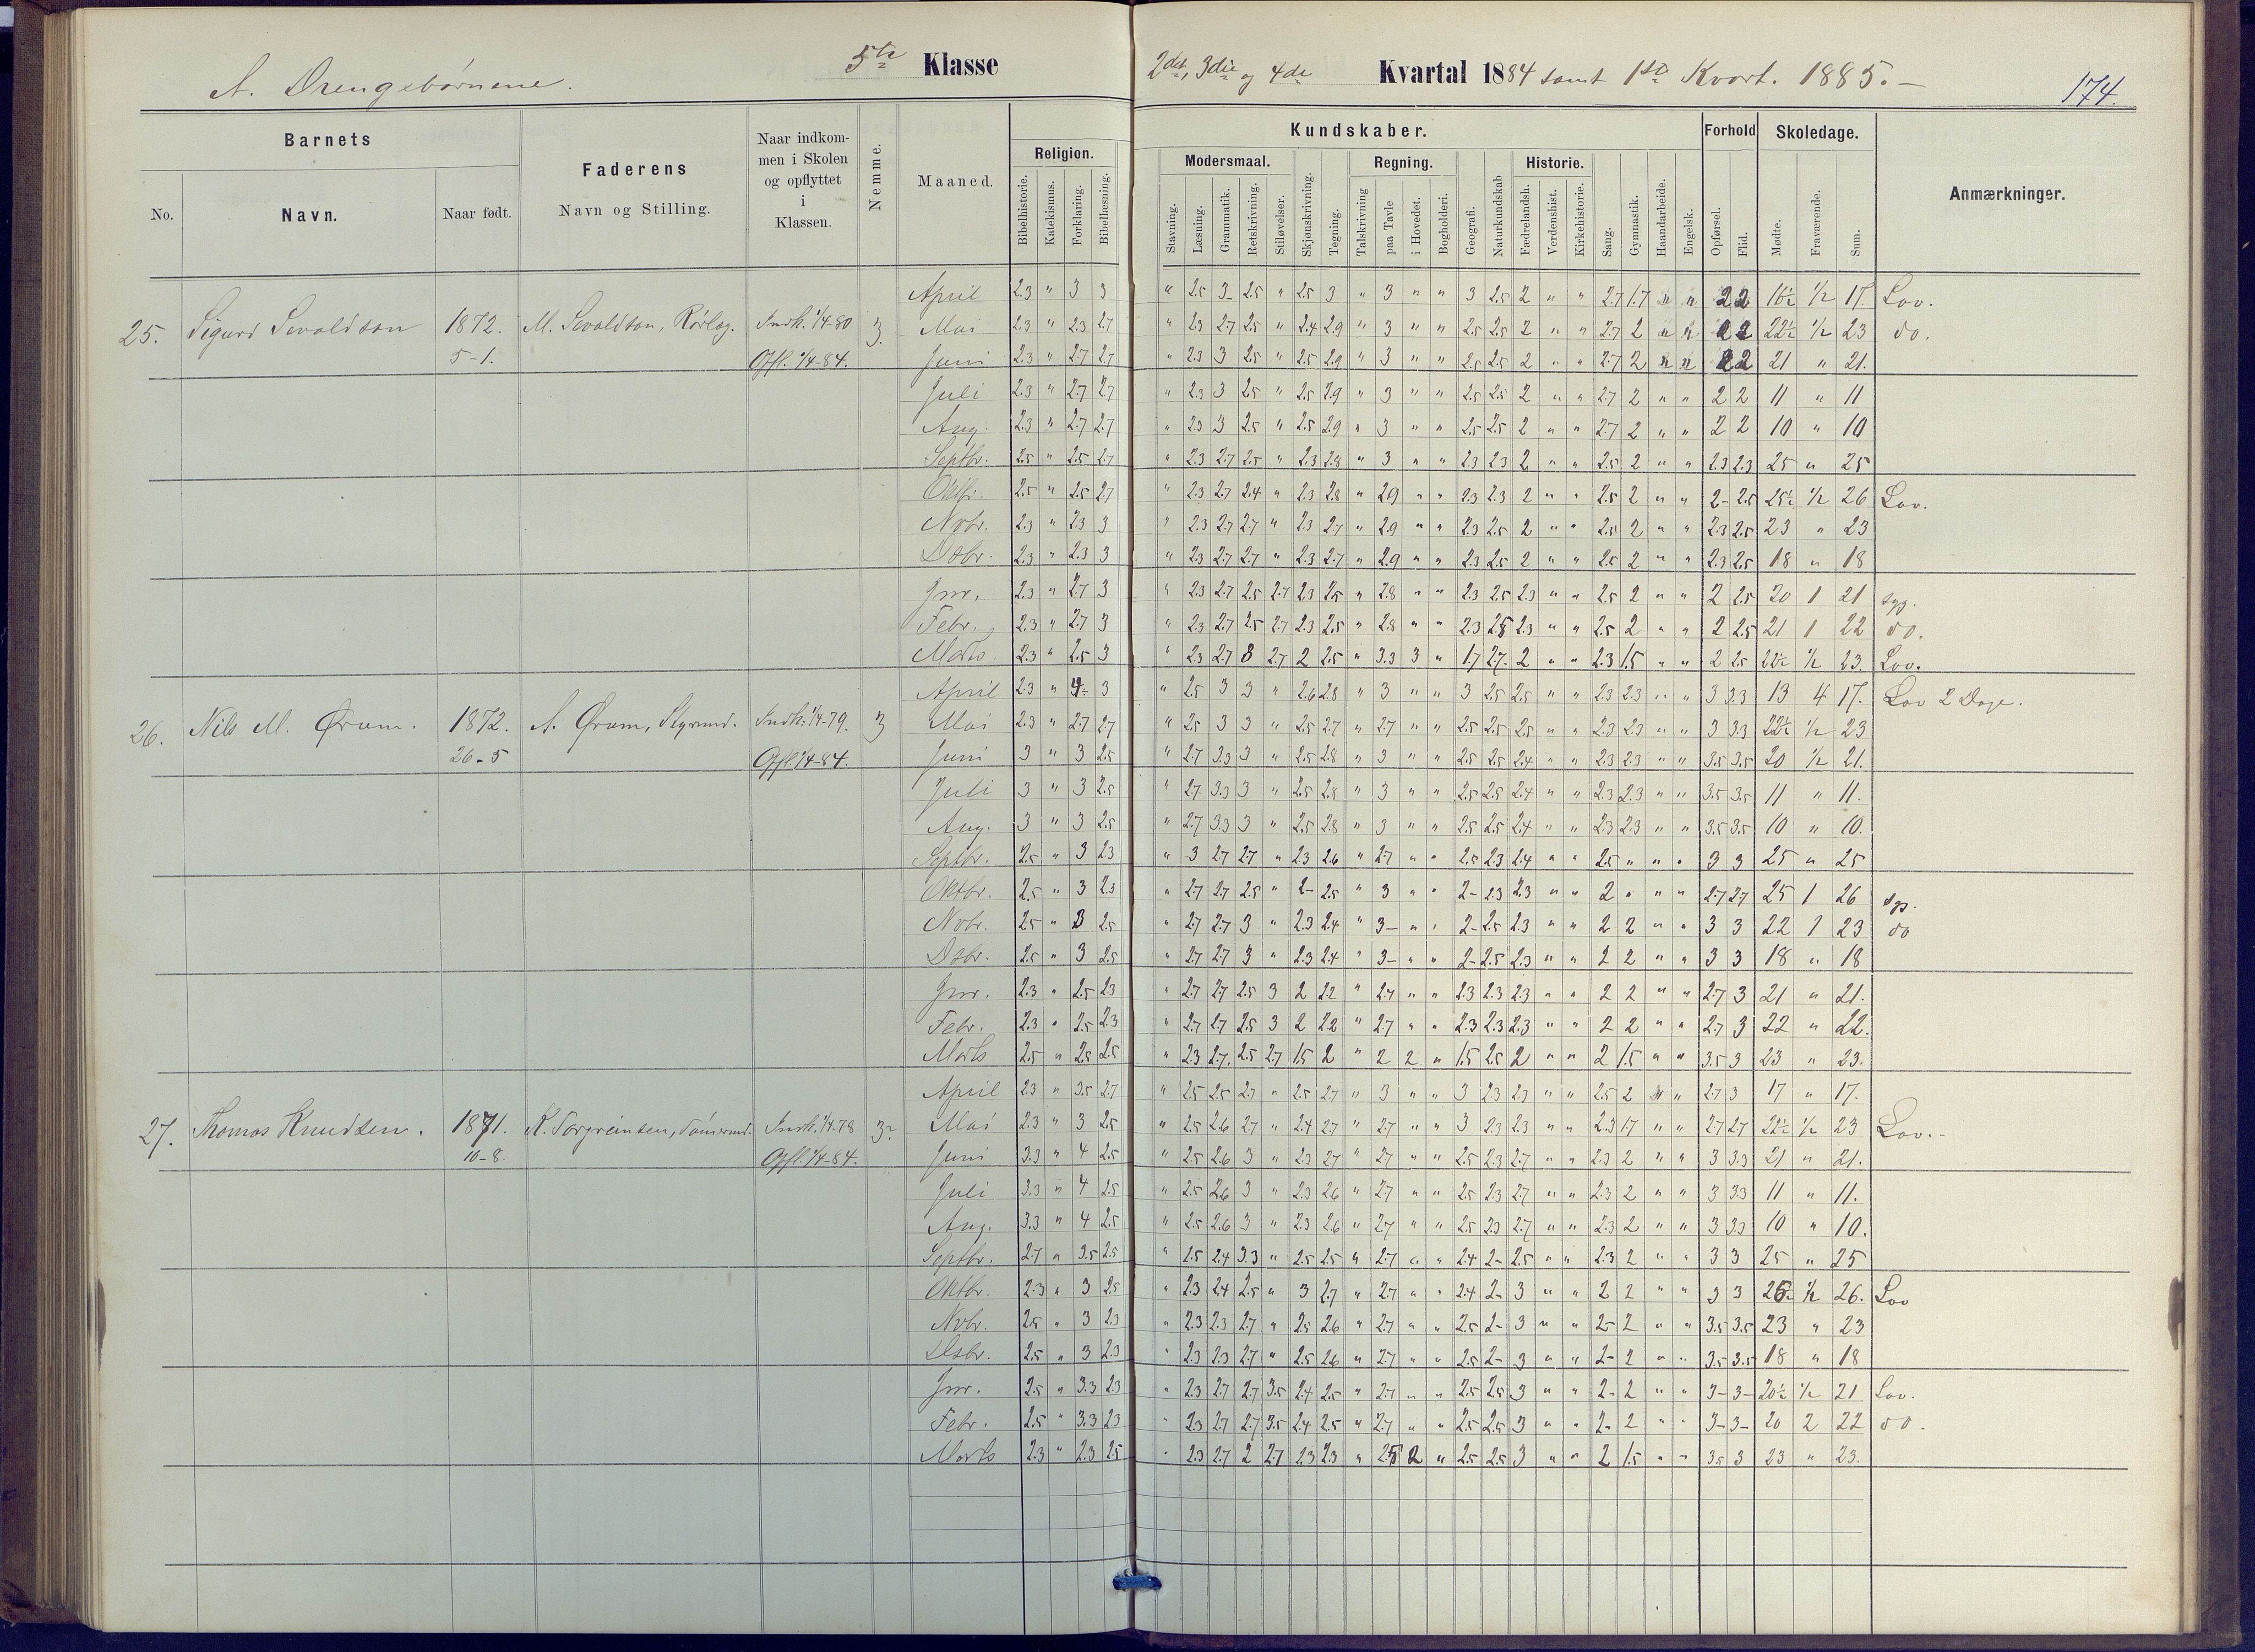 A. Drengebørnene.
5te Klasse
2det, 3die og 4de Kvartal 1884 samt 1ste Kvart. 1885.-
174.
Barnets
Faderens
Naar indkommen i Skolen og opflyttet i Klassen.
Nemme.
Maaned.
Religion.
Kundskaber.
Modersmaal.
Regning.
Historie.
Forhold
Skoledage.
Anmærkninger.
No.
Navn.
Naar født.
Navn og Stilling.
Bibelhistorie.
Katekismus.
Forklaring.
Bibellæsning.
Stavning.
Læsning.
Grammatik.
Retskrivning.
Stiløvelser.
Skjønskrivning.
Tegning.
Talskrivning
paa Tavle
i Hovedet.
Bogholderi.
Geografi.
Naturkundskab
Fædrelandsh.
Verdenshist.
Kirkehistorie.
Sang.
Gymnastik.
Haandarbeide.
Engelsk.
Opførsel.
Flid.
Mødte.
Fraværende.
Sum.
April 2.3 " 3 3 " 2.5 3- 2.5 " 2.5 3 " 3 " " 3 2.5 2 " " 2.7 1.7 " " 2 2 16½ ½ 17. Lov.
25. Sigurd Sevaldson 1872. M. Sevaldson, Rørlæg. Indk. 1/4-80 3. Mai 2.3 " 2.3 2.7 " 2.3 2.7 2.5 " 2.4 2.9 " 3 " " 2.5 2.5 2 " " 2.7 2 " " 2 2 22½ ½ 23 do.
5-1. Opfl. 1/4-84. Juni 2.3 " 2.7 2.7 " 2.3 3 2.5 " 2.5 2.9 " 3 " " 2.5 2.5 2 " " 2.7 2 " " 2 2 21 " 21.
Juli 2.3 " 2.7 2.7 " 2.3 3 2.5 " 2.5 2.9 " 3 " " 2.5 2.5 2 " " 2.7 2 " " 2 2 11 " 11
Aug. 2.3 " 2.7 2.7 " 2.3 3 2.5 " 2.5 2.9 " 3 " " 2.5 2.5 2 " " 2.7 2 " " 2 2 10 " 10
Septbr. 2.5 " 2.5 2.7 " 2.3 2.7 2.5 " 2.3 2.8 " 3 " " 2.3 2.3 2 " " 2.5 2 " " 2.3 2.3 25 " 25
Oktbr. 2.5 " 2.5 2.7 " 2.3 2.7 2.4 " 2.3 2.8 " 2.9 " " 2.3 2.3 2 " " 2.5 2 " " 2- 2.5 25½ ½ 26 Lov.
Nvbr. 2.3 " 2.3 3 " 2.3 2.7 2.7 " 2.3 2.7 " 2.9 " " 2.3 2.5 2 " " 2.5 2 " " 2.3 2.5 23 " 23
Dsbr. 2.3 " 2.3 3 " 2.3 2.7 2.7 " 2.3 2.7 " 2.9 " " 2.3 2.5 2 " " 2.5 2 " " 2.3 2.5 18 " 18
Jnr. 2.3 " 2.7 3 " 2.3 2.7 2.5 2.7 2.3 2.5 " 2.8 " " 2.3 2.5 2.3 " " 2.5 2 " " 2 2.5 20 1 21 syg.
Febr. 2.3 " 2.7 3 " 2.3 2.7 2.5 2.7 2.3 2.5 " 2.8 " " 2.3 2.5 2.3 " " 2.5 2 " " 2 2.5 21 1 22 do.
Marts 2.3 " 2.5 3 " 2.3 2.7 3 2.7 2 2.5 " 3.3 3 " 1.7 2.7 2 " " 2.3 1.5 " " 2 2.5 22½ ½ 23. Lov.
April 2.3 " 4- 3 " 2.5 3 3 " 2.6 2.8 " 3 " " 3 2.5 2.5 " " 2.3 2.3 " " 3 3.3 13 4 17. Lov 2 Dage.
26. Nils M. Ørum. 1872. A. Ørum, Styrmd. Indk. 1/4-79. 3 Mai 2.3 " 2.7 2.7 " 2.5 3 3 " 2.5 2.7 " 2.7 " " 2.5 2.5 2.5 " " 2.3 2.3 " " 3 3.3 22½ ½ 23
26-5 Opfl. 1/4-84. Juni 3 " 3 2.5 " 2.7 3.3 3 " 2.5 2.8 " 3 " " 2.5 2.5 2.4 " " 2.3 2.3 " " 3.5 3.5 20 ½ 21.
Juli 3 " 3 2.5 " 2.7 3.3 3 " 2.5 2.8 " 3 " " 2.5 2.5 2.4 " " 2.3 2.3 " " 3.5 3.5 11 " 11.
Aug. 3 " 3 2.5 " 2.7 3.3 3 " 2.5 2.8 " 3 " " 2.5 2.5 2.4 " " 2.3 2.3 " " 3.5 3.5 10 " 10.
Septbr. 2.5 " 3 2.3 " 3 2.7 2.7 " 2.3 2.6 " 2.7 " " 2.5 2.3 2.4 " " 2.5 " " " 3 3 25 " 25
Oktbr. 2.5 " 3 2.3 " 2.7 2.7 2.5 " 2- 2.5 " 3 " " 2- 2.3 2.3 " " 2 " " " 2.7 2.7 25 1 26 syg.
Nvbr. 2.5 " 3 2.5 " 2.7 2.7 3 " 2.3 2.4 " 3- " " 2- 2.5 2.3 " " 2 2 " " 3 3 22 1 23 do
Dsbr. 2.5 " 3 2.5 " 2.7 2.7 3 " 2.3 2.4 " 3- " " 2- 2.5 2.3 " " 2 2 " " 3 3 18 " 18
Jnr. 2.3 " 2.5 2.3 " 2.7 2.7 2.5 3 2 2.2 " 2.7 " " 2.3 2.3 2.3 " " 2 2 " " 2.7 3 21 " 21.
Febr. 2.3 " 2.5 2.3 " 2.7 2.7 2.5 3 2 2.2 " 2.7 " " 2.3 2.3 2.3 " " 2 2 " " 2.7 3 22 " 22.
Marts 2.5 " 2.5 2.5 " 2.3 2.7. 2.5 2.7 1.5 2 " 2 2 " 1.5 2.5 2 " " 2 1.5 " " 3.5 3 23 " 23.
April 2.3 " 3.5 2.7 " 2.5 2.5 2.7 " 2.5 2.7 " 3 " " 3 2.3 2.3 " " 2.5 2 " " 2.7 3 17 " 17.
27. Thomas Knudsen. 1871. K. Torgreinsen, Tømmermd. Indk. 1/4-78 3- Mai 2.3 " 3 2.5 " 2.5 2.6 2.7 " 2.4 2.7 " 2.7 " " 3 2.3 2.3 " " 2.3 1.7 " " 2.7 2.7 22½ ½ 23 Lov.-
10-8. Opfl. 1/4-84. Juni 3.3 " 4 2.5 " 2.5 2.6 3 " 2.3 2.7 " 2.7 " " 2.5 2.3 2.7 " " 2.3 2 " " 3 3.3 21 " 21.
Juli 3.3 " 4 2.5 " 2.5 2.6 3 " 2.3 2.6 " 2.7 " " 2.5 2.3 2.7 " " 2.3 2 " " 3 3.3 11 " 11.
Aug. 3.3 " 4 2.5 " 2.5 2.6 3 " 2.3 2.6 " 2.7 " " 2.5 2.3 2.7 " " 2.3 2 " " 3 3.3 10 " 10.
Septbr. 2.7 " 3.5 2.5 " 2.5 2.4 3.3 " 2.5 2.5 " 2.7 " " 2.4 2- 2.5 " " 2.3 2 " " 3 3 25 " 25
Oktbr. 2.3 " 3 2.5 " 2.3 2.4 2.5 " 3 2.7 " 2.7 " " 2.4 2- 3 " " 2 2 " " 3 3 25½ ½ 26. Lov
Nvbr. 2.5 " 3 2.3 " 2.3 2.3 2.7 " 2.5 2.6 " 2.7 " " 2.5 2- 3 " " 2- 2 " " 3.5 3.5 23 " 23
Dsbr. 2.5 " 3 2.3 " 2.3 2.3 2.7 " 2.5 2.6 " 2.7 " " 2.5 2- 3 " " 2- 2 " " 3.5 3.5 18 " 18
Jnr. 2.5 " 3.3 2.3 " 2.3 2.7 2.7 3.5 2.4 2.5 " 2.7 " " 2.5 2.5 3 " " 2- 2 " " 3- 3- 20½ ½ 21 Lov.
Febr. 2.5 " 3.3 2.3 " 2.3 2.7 2.7 3.5 2.4 2.5 " 2.7 " " 2.5 2.5 3 " " 2- 2 " " 3- 3- 20 2 22 do.
Marts 2.3 " 2.3 2.5 " 2.3 2.7 2 2.7 2.3 2.3 " 2.5 2 " 2.5 2.5 3 " " 2 1.5 " " 3.5 3 23 " 23.